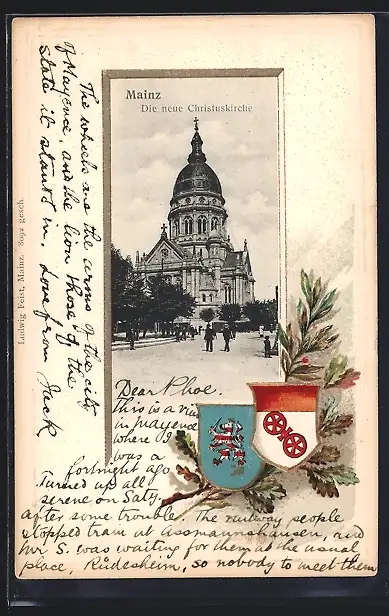 Mainz
Die neue Christuskirche
Ludwig Feist, Mainz. 3692 gesch.
The wheels are the arms of the city
of Mayence, and the lion those of the
state it stands in. Love from Jack
Dear Phoe.
This is a view
in mayence
where I
was a
fortnight ago
Turned up all
serene on Saty.
after some trouble. The railway people
stopped train at Assmannshausen, and
Mr S. was waiting for them at the usual
place, Rüdesheim, so nobody to meet them